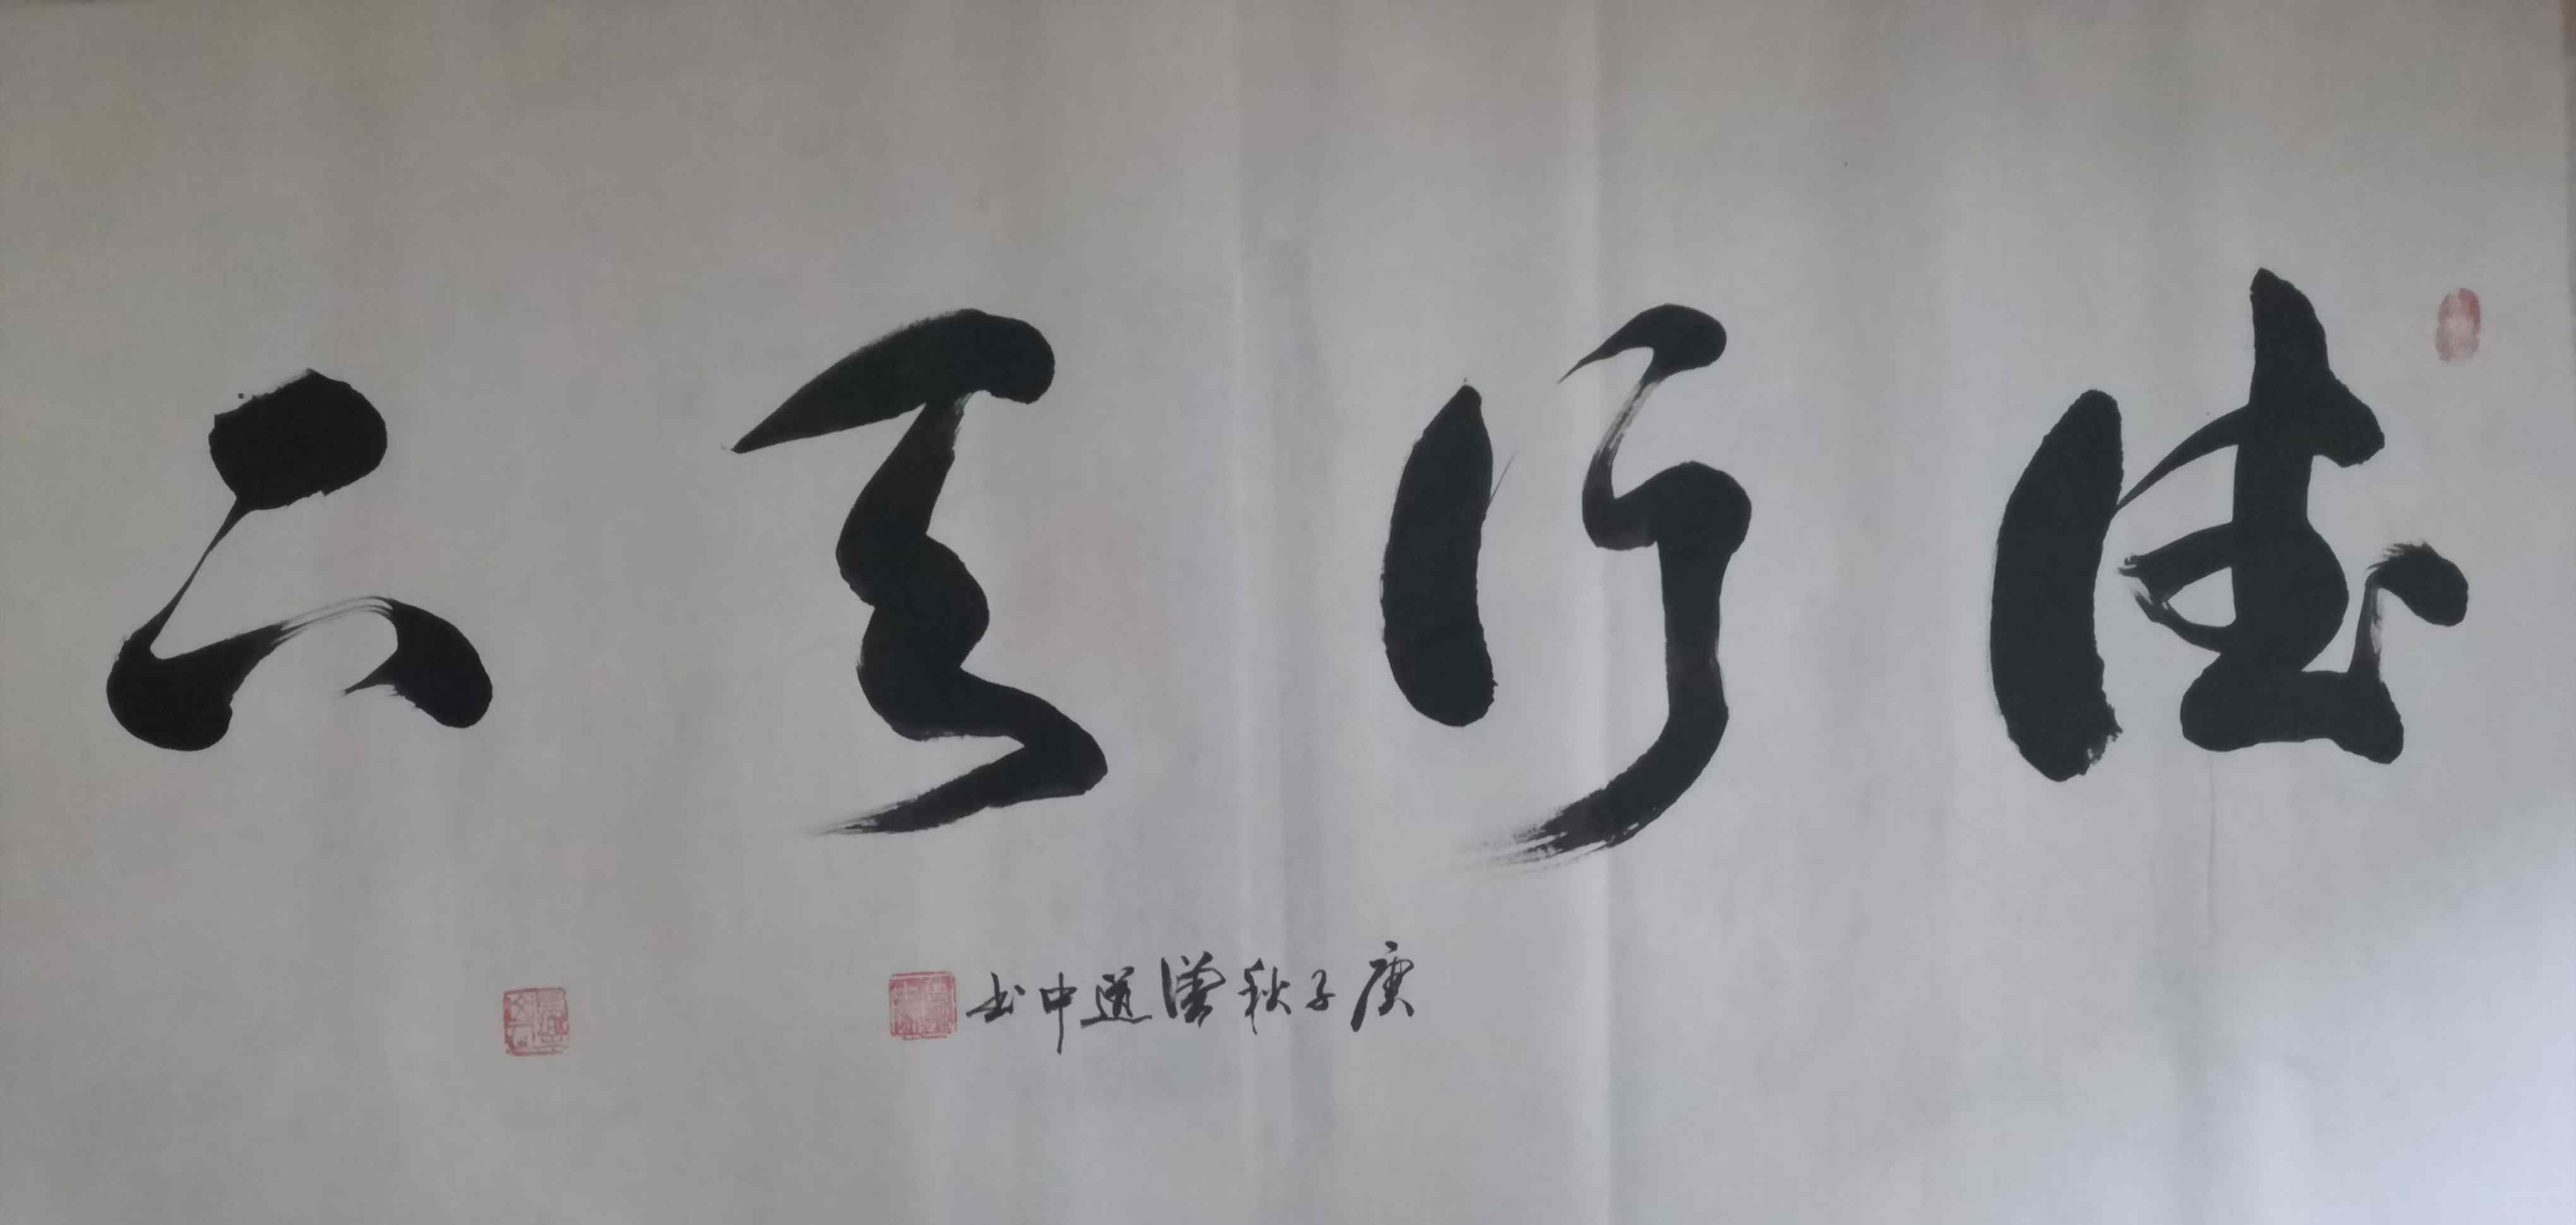 德行天下
庚子秋潘道中书